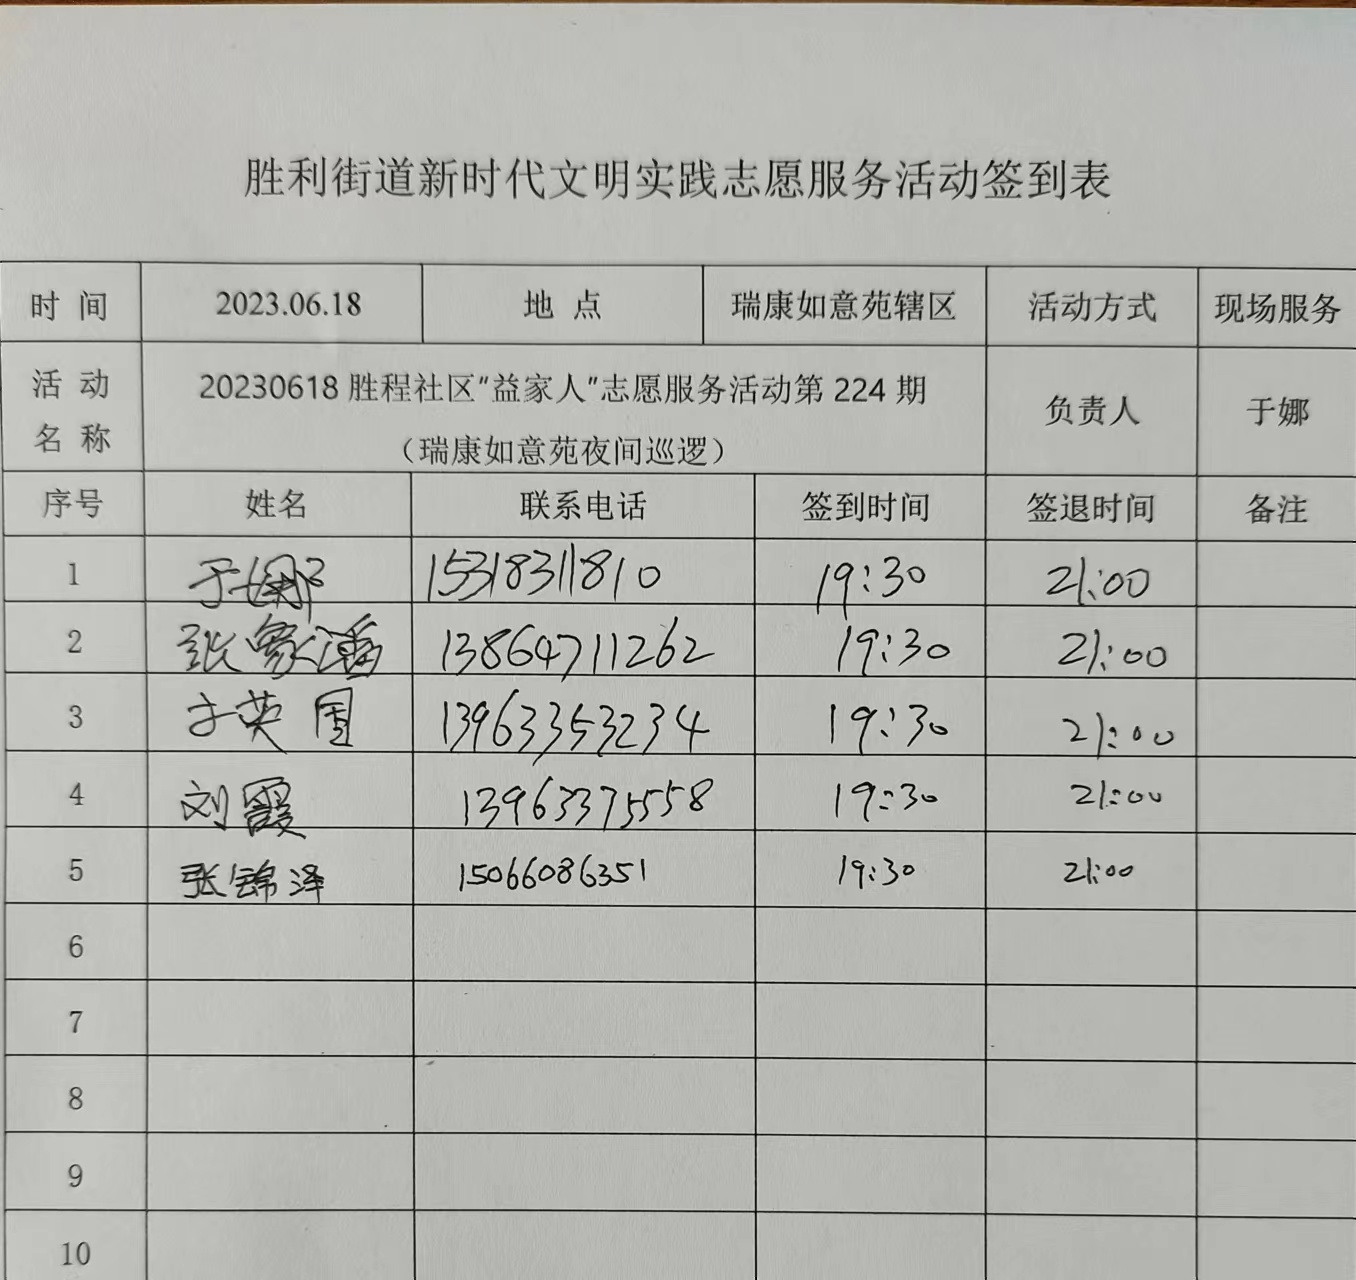 胜利街道新时代文明实践志愿服务活动签到表
时 间 2023.06.18 地 点 瑞康如意苑辖区 活动方式 现场服务
活 动 名 称 20230618 胜程社区“益家人”志愿服务活动第 224 期 负责人 于娜
（瑞康如意苑夜间巡逻）
序号 姓名 联系电话 签到时间 签退时间 备注
1 于娜 15318311810 19:30 21:00
2 张家 13864711262 19:30 21:00
3 于英国 13963353234 19:30 21:00
4 刘霞 13963375558 19:30 21:00
5 张锦泽 15066086351 19:30 21:00
6
7
8
9
10